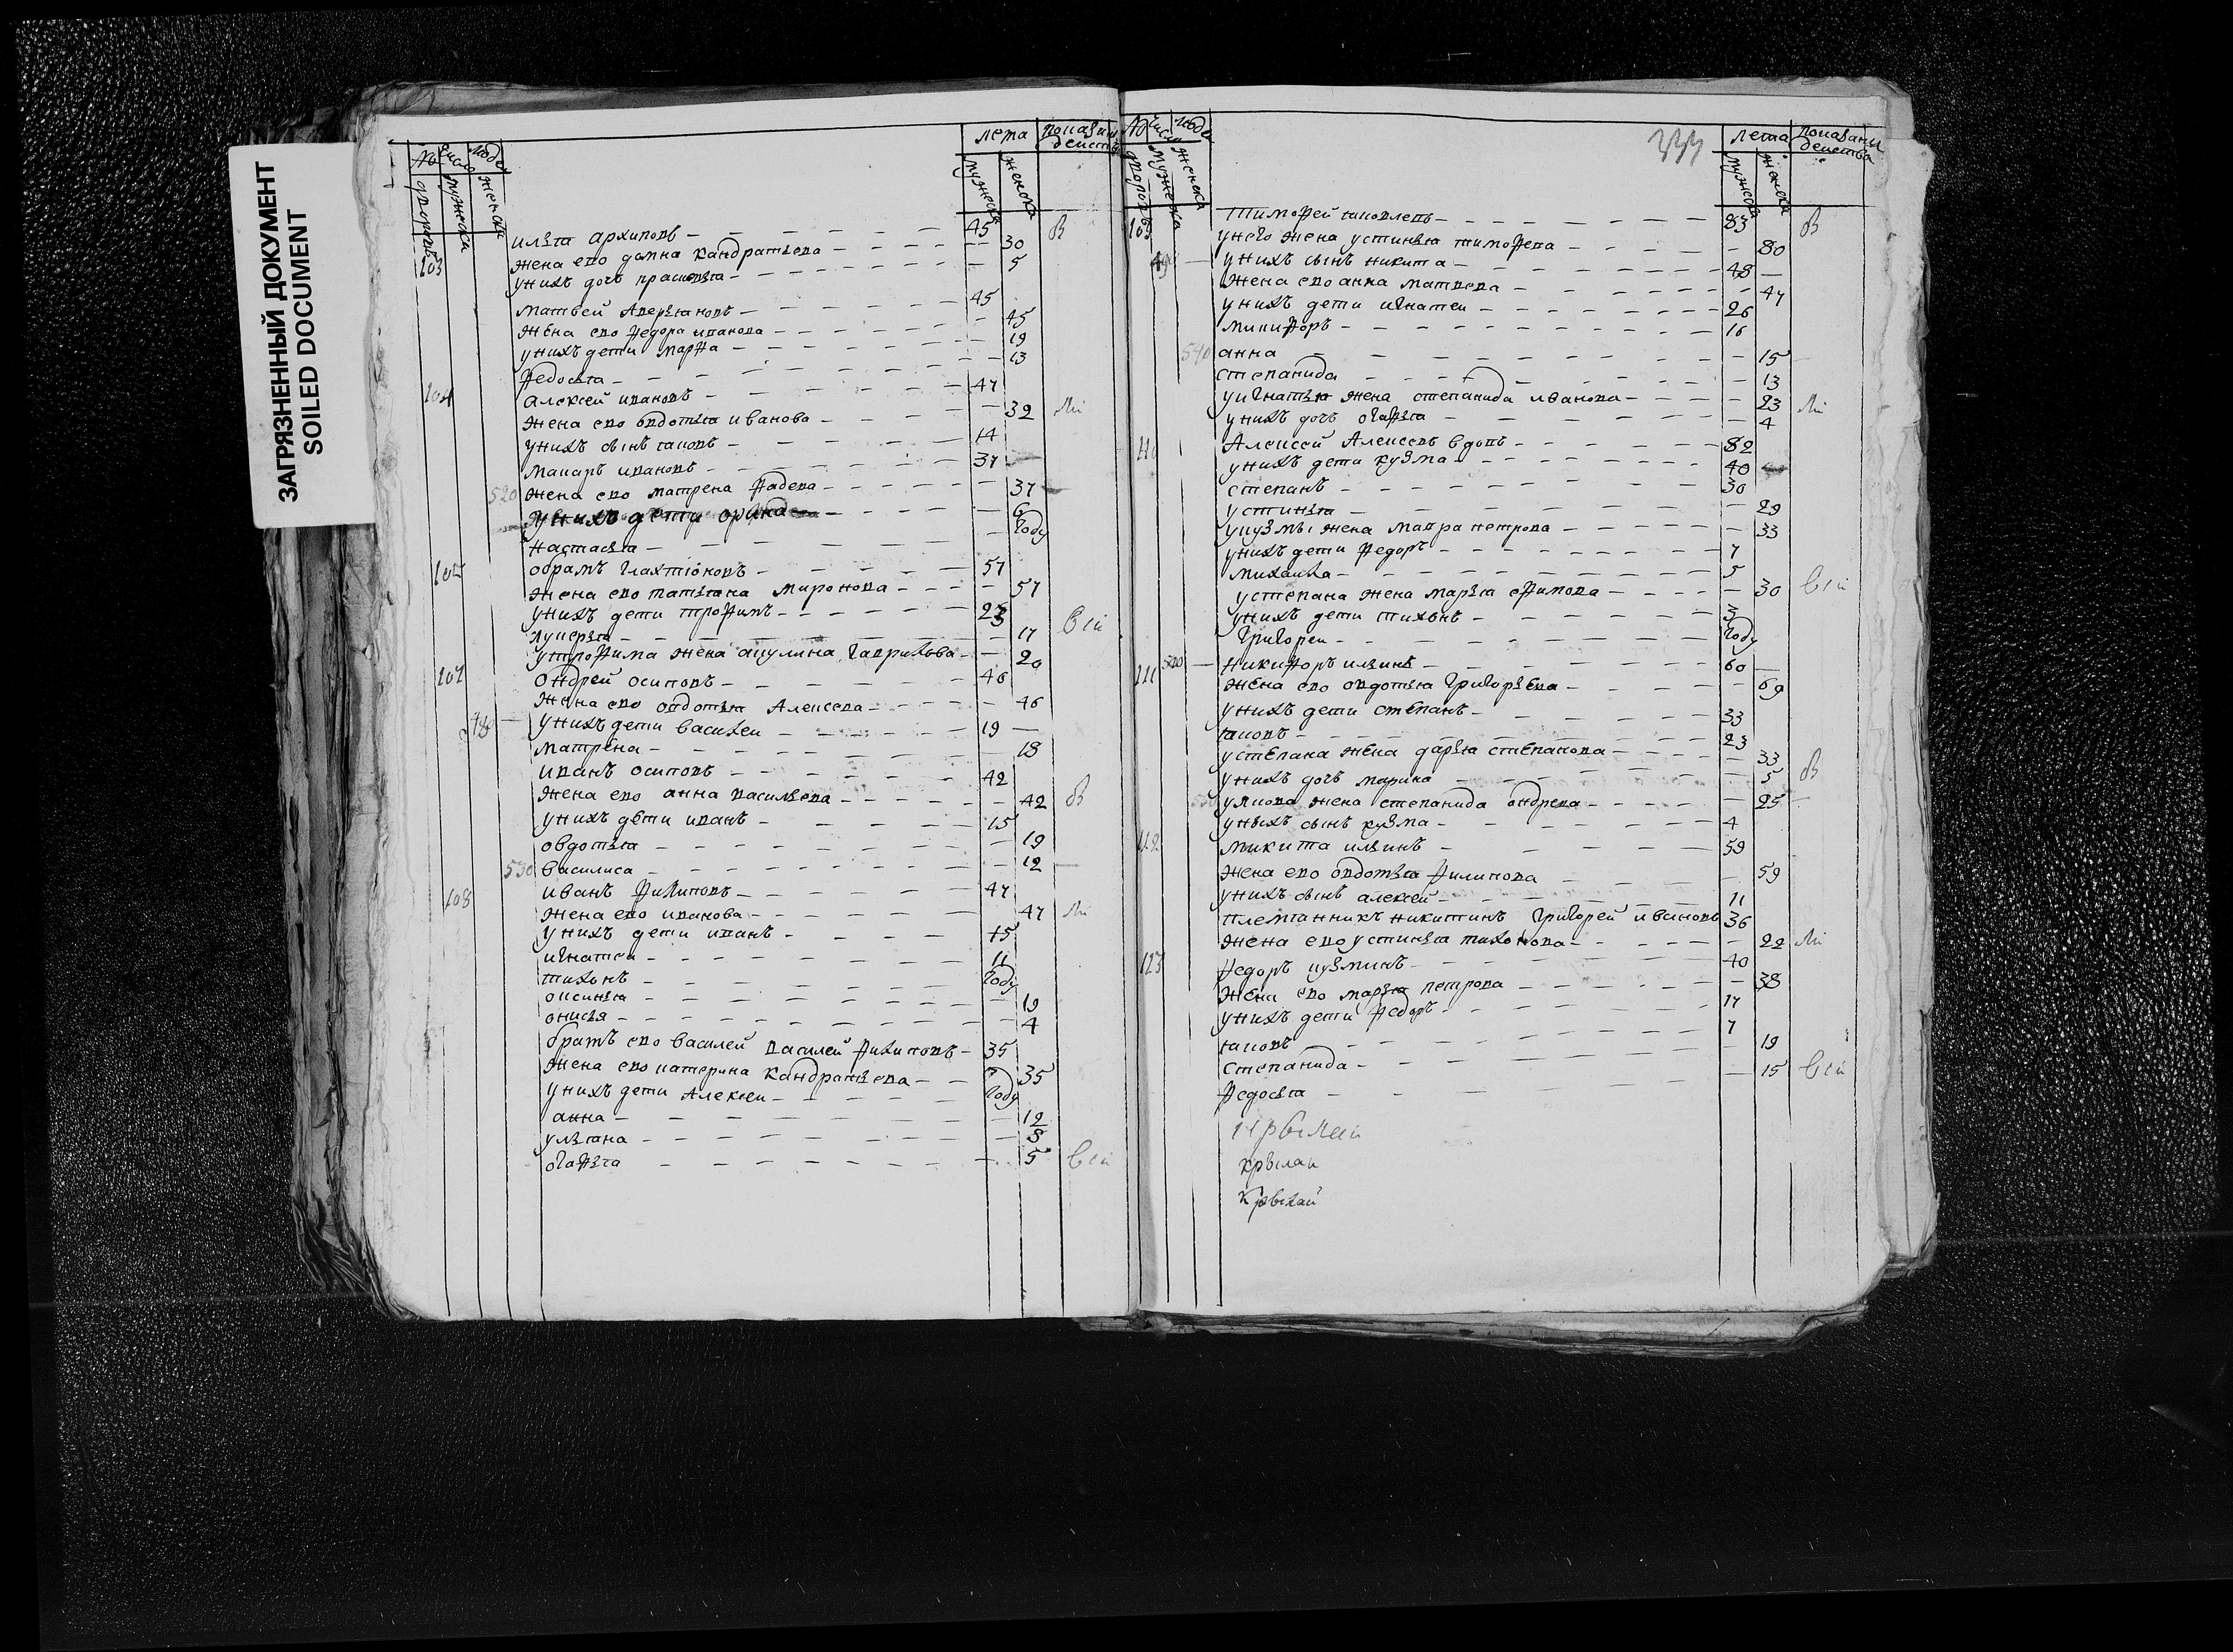 ЗАГРЯЗНЕННЫЙ ДОКУМЕНТ
SOILED DOCUMENT
№ число люде лета показани
дворовъ мужеска женска мужеска женска деиства
103 илья архиповъ 45 В
жена ево домна кандратьева 30
унихъ дочь прасковья 5
матвей аверьяновъ 45
жена ево федора иванова 45
унихъ дети марфа 19
федосья 13
104 алексей ивановъ 47
жена ево овдотья иванова 32
унихъ сынъ яковъ 14
макаръ ивановъ 37
520 жена ево матрена фадева 37
унихъ дети орина 6
настасья году
обрамъ галахтионовъ 57
жена ево татьяна миронова 57
унихъ дети трофимъ 23
лукерья 17
утрофима жена акулина гаврилова 20
107 ондрей осиповъ 46
жена ево овдотья алексева 46
унихъ дети василеи 19
матрена 18
иванъ осиповъ 42
жена ево анна васильева 42 В
унихъ дети иванъ 15
овдотья 19
530 василиса 12
108 иванъ филиповъ 47
жена ево иванова 47
унихъ дети иванъ 15
игнатеи 11
тихонъ году
оксинья 19
онисья 4
братъ ево василей василей филиповъ 35
жена ево катерина кандратьева 35
унихъ дети алексеи году
анна 12
ульяна 8
огафья 5
№ число люде лета показани
дворовъ мужеска женска 333 мужеска женска деиства
109 тимофей яковлевъ 83 В
унего жена устинья тимофева 80
унихъ сынъ никита 48
жена ево анна матвева 47
унихъ дети игнатеи 26
микифоръ 16
540 анна 15
степанида 13
уигнатья жена степанида иванова 23
унихъ дочь огафья 4
110 алексей алексевъ вдовъ 82
унихъ дети кузма 40
степанъ 30
устинья 29
укузмы жена мавра петрова 33
унихъ дети федоръ 7
михаила 5
устепана жена марья ефимова 30
унихъ дети тихонъ 3
григореи году
111 500 никифоръ ильинъ 60
жена ево овдотья григорьева 69
унихъ дети степанъ 33
яковъ 23
устепана жена дарья степанова 33
унихъ дочь марина 5 В
уякова жена степанида ондрева 25
унихъ сынъ кузма 4
112 микита ильинъ 59
жена ево овдотья филипова 59
унихъ сынъ алексей 11
племянникъ никитинъ григорей ивановъ 36
жена ево устинья тихонова 22
113 федоръ кузминъ 40
жена ево марья петрова 38
унихъ дети федоръ 17
яковъ 7
степанида 19
федосья 15
крылаи
крылаи